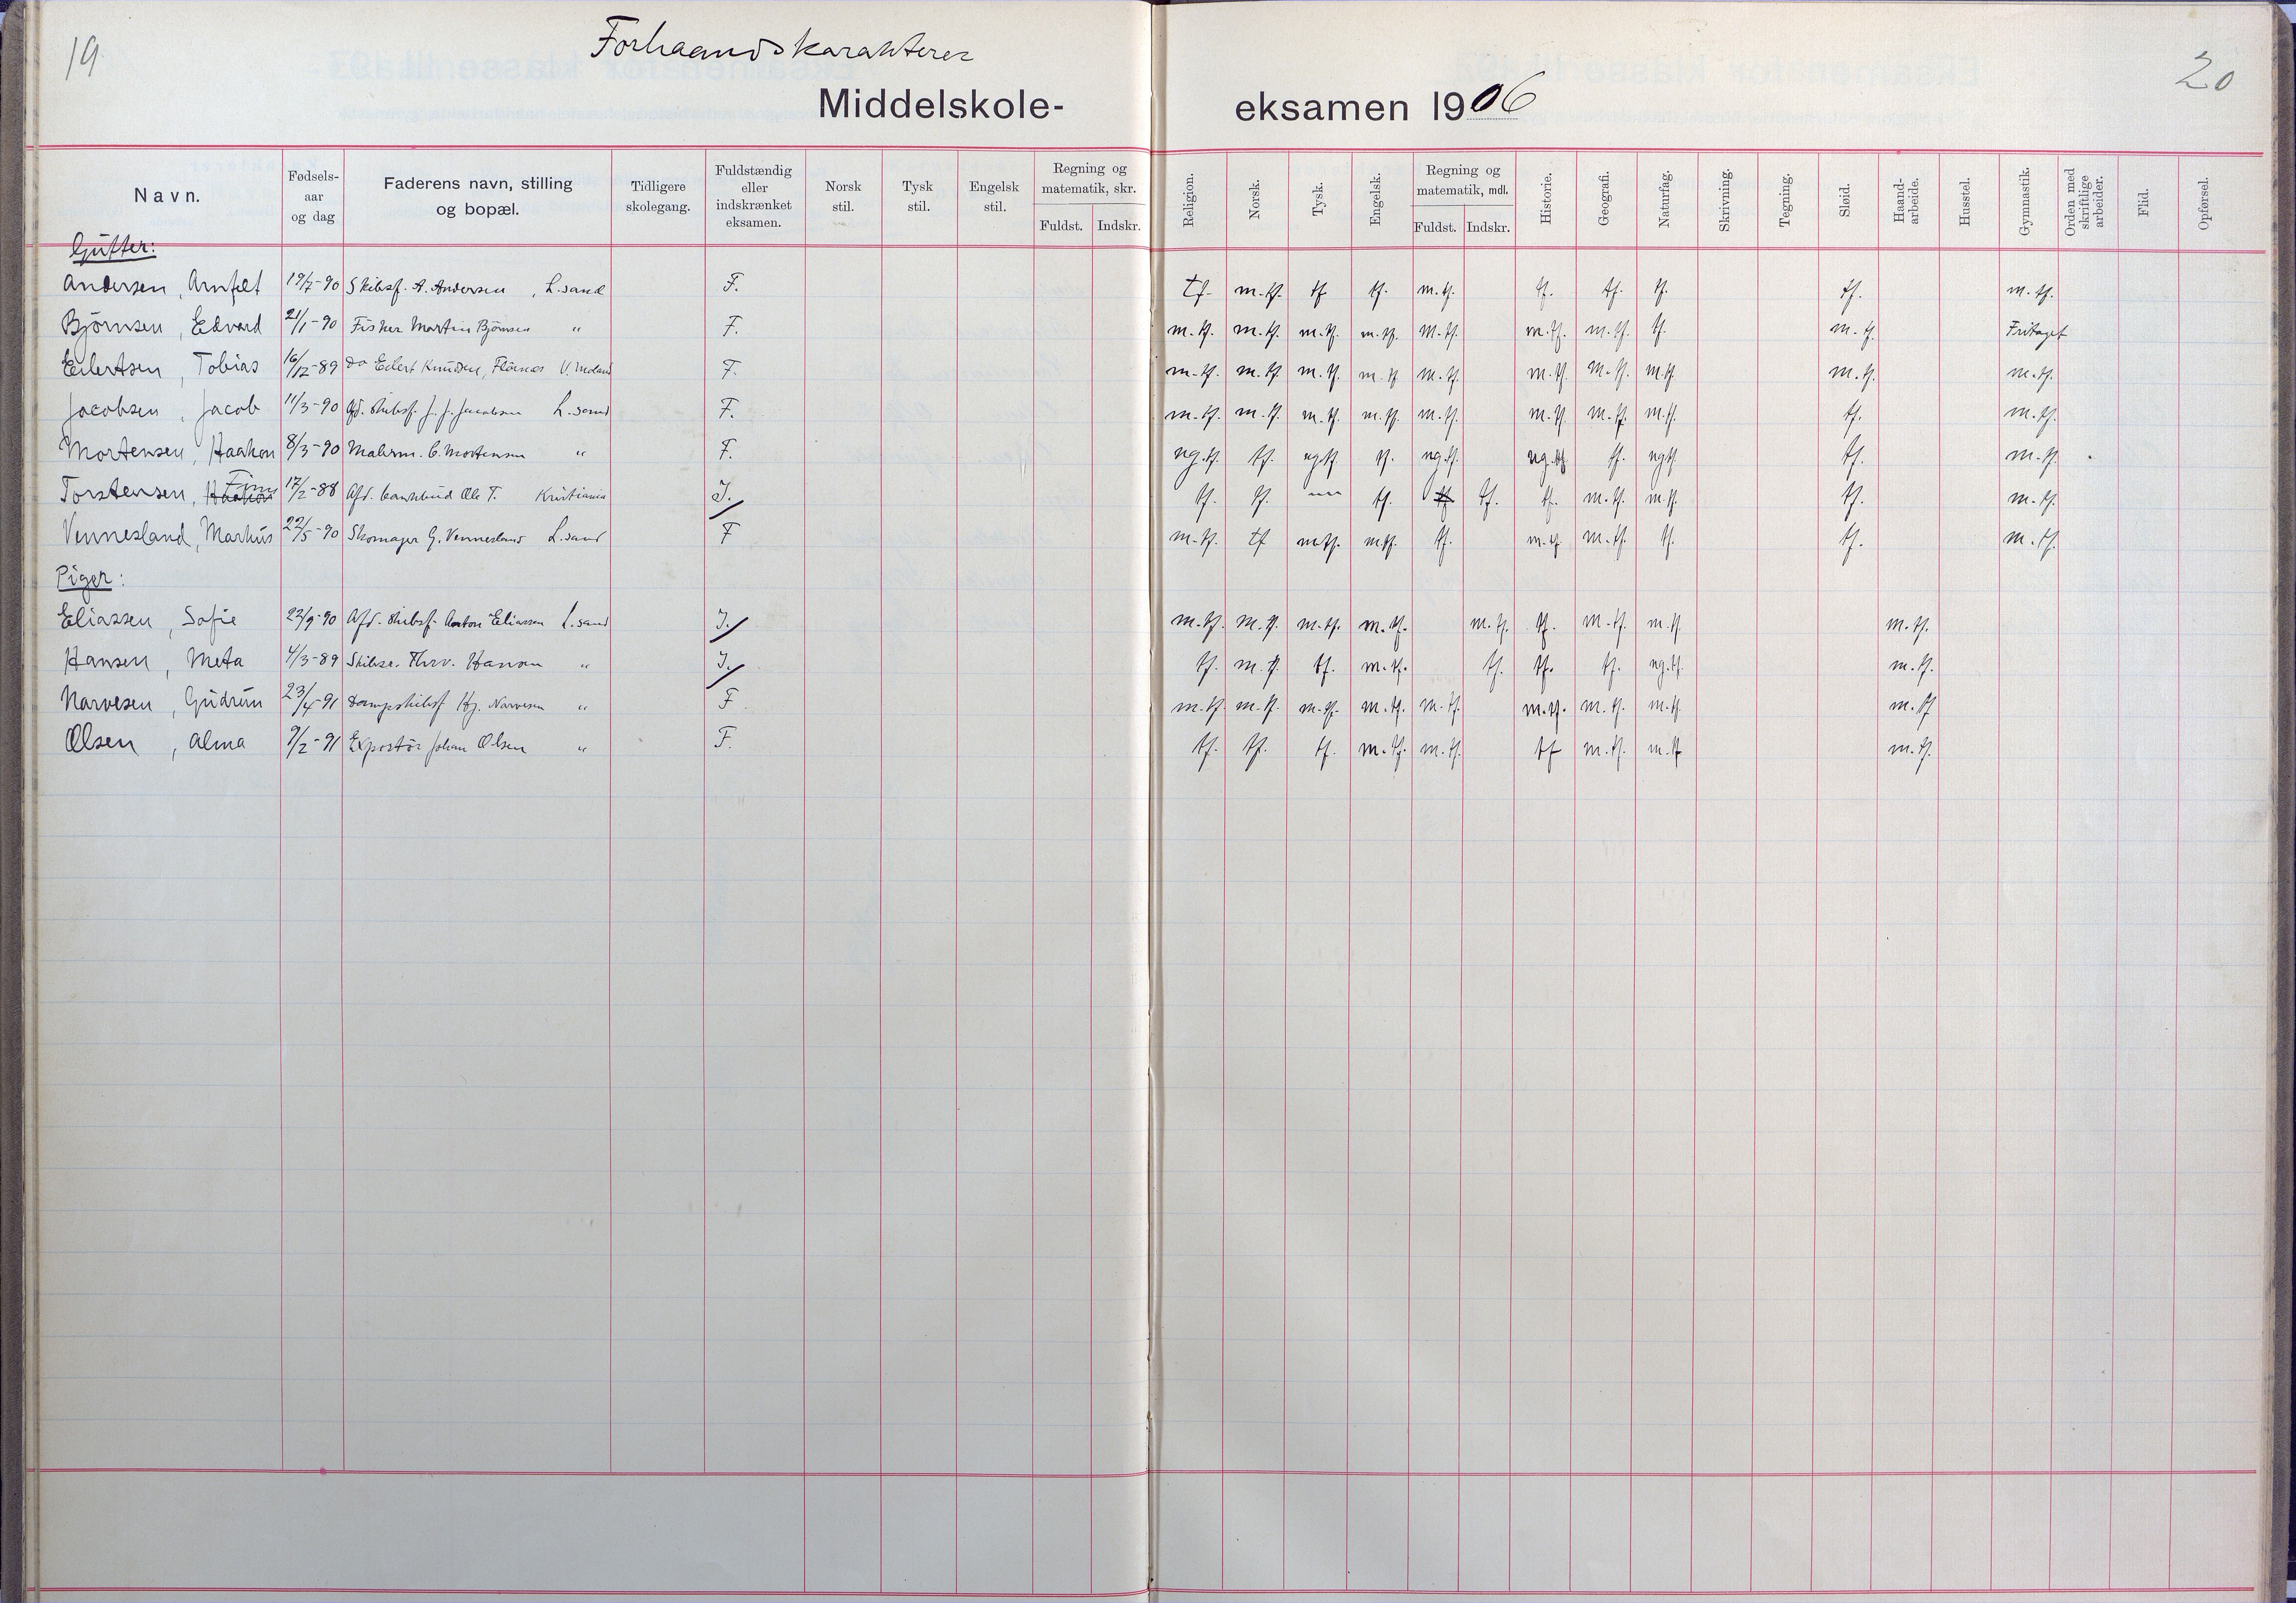 19
20
Forhaandskarakterer
Middelskole-eksamen 1906
Navn. Fødsels-aar og dag Faderens navn, stilling og bopæl. Tidligere skolegang. Fuldstændig eller indskrænket eksamen. Norsk stil. Tysk stil. Engelsk stil. Regning og matematik, skr. Fuldst. Indskr. Religion. Norsk. Tysk. Engelsk. Regning og matematik, mdl. Fuldst. Indskr. Historie. Geografi. Naturfag. Skrivning. Tegning. Sløid. Haand-arbeide. Husstel. Gymnastik. Orden med skriftlige arbeider. Flid. Opførsel.
Gutter:
Andersen, Arnfelt 19/7-90 Skibsf. A. Andersen, L.sand F. tf. m.tf. tf tf. m.tf. tf. tf. tf. tf. m.tf.
Björnsen, Edvard 21/1-90 Fisker Martin Björnsen " F. m.tf. m.tf. m.tf. m.tf. m.tf. m.tf. m.tf. tf. m.tf. Fritaget
Eilertsen, Tobias 16/12-89 do Eilert Knudsen, V. Moland F. m.tf. m.tf. m.tf. m.tf. m.tf. m.tf. m.tf. m.tf. m.tf. m.tf.
Jacobsen, Jacob 11/3-90 Afd. skibsf. J. J. Jacobsen L.sand F. m.tf. m.tf. m.tf. m.tf. m.tf. m.tf. m.tf. m.tf. tf. m.tf.
Mortensen, Haakon 8/3-90 Malerm. C. Mortensen " F. ng.tf. tf. ngtf. tf. ng.tf. ng.tf. tf. ngtf. tf. m.tf.
Torstensen, Haakon Finn 17/2-88 Afd. Ole T. Kristiania I. tf. tf. — tf. tf tf. tf. m.tf. m.tf. tf. m.tf.
Vennesland, Markus 22/5-90 Skomager G. Vennesland L.sand F m.tf. tf m.tf. m.tf. tf. m.tf. m.tf. tf. tf. m.tf.
Piger:
Eliassen, Sofie 22/9-90 Afd. skibsf. Anton Eliassen L.sand I. m.tf. m.tf. m.tf. m.tf. m.tf. tf. m.tf. m.tf. m.tf.
Hansen, Meta 4/3-89 Skibsr. Thrv. Hansen " I. tf. m.tf. tf. m.tf. tf. tf. tf. ng.tf. m.tf.
Narvesen, Gudrun 23/4-91 Dampskibsf. Hj. Narvesen " F m.tf. m.tf. m.tf. m.tf. m.tf. m.tf. m.tf. m.tf. m.tf
Olsen, Alma 9/2-91 Expositör Johan Olsen " F. tf. tf. tf. m.tf. m.tf. tf m.tf. m.tf m.tf.